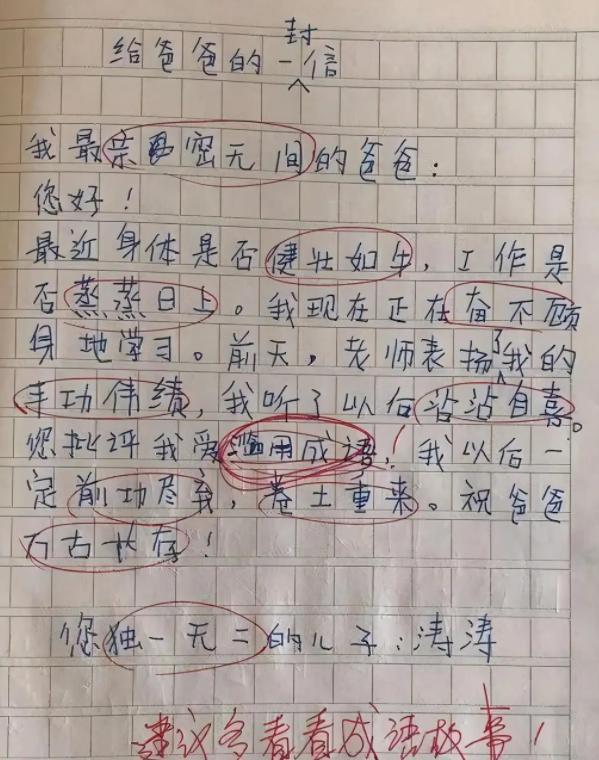 给爸爸的一封信
我最亲密无间的爸爸：
您好！
最近身体是否健壮如牛，工作是
否蒸蒸日上。我现在正在奋不顾
身地学习。前天，老师表扬了我的
丰功伟绩，我听了以后沾沾自喜。
您批评我爱滥用成语！我以后一
定前功尽弃，卷土重来。祝爸爸
万古长存！
您独一无二的儿子：涛涛
建议多看看成语故事！